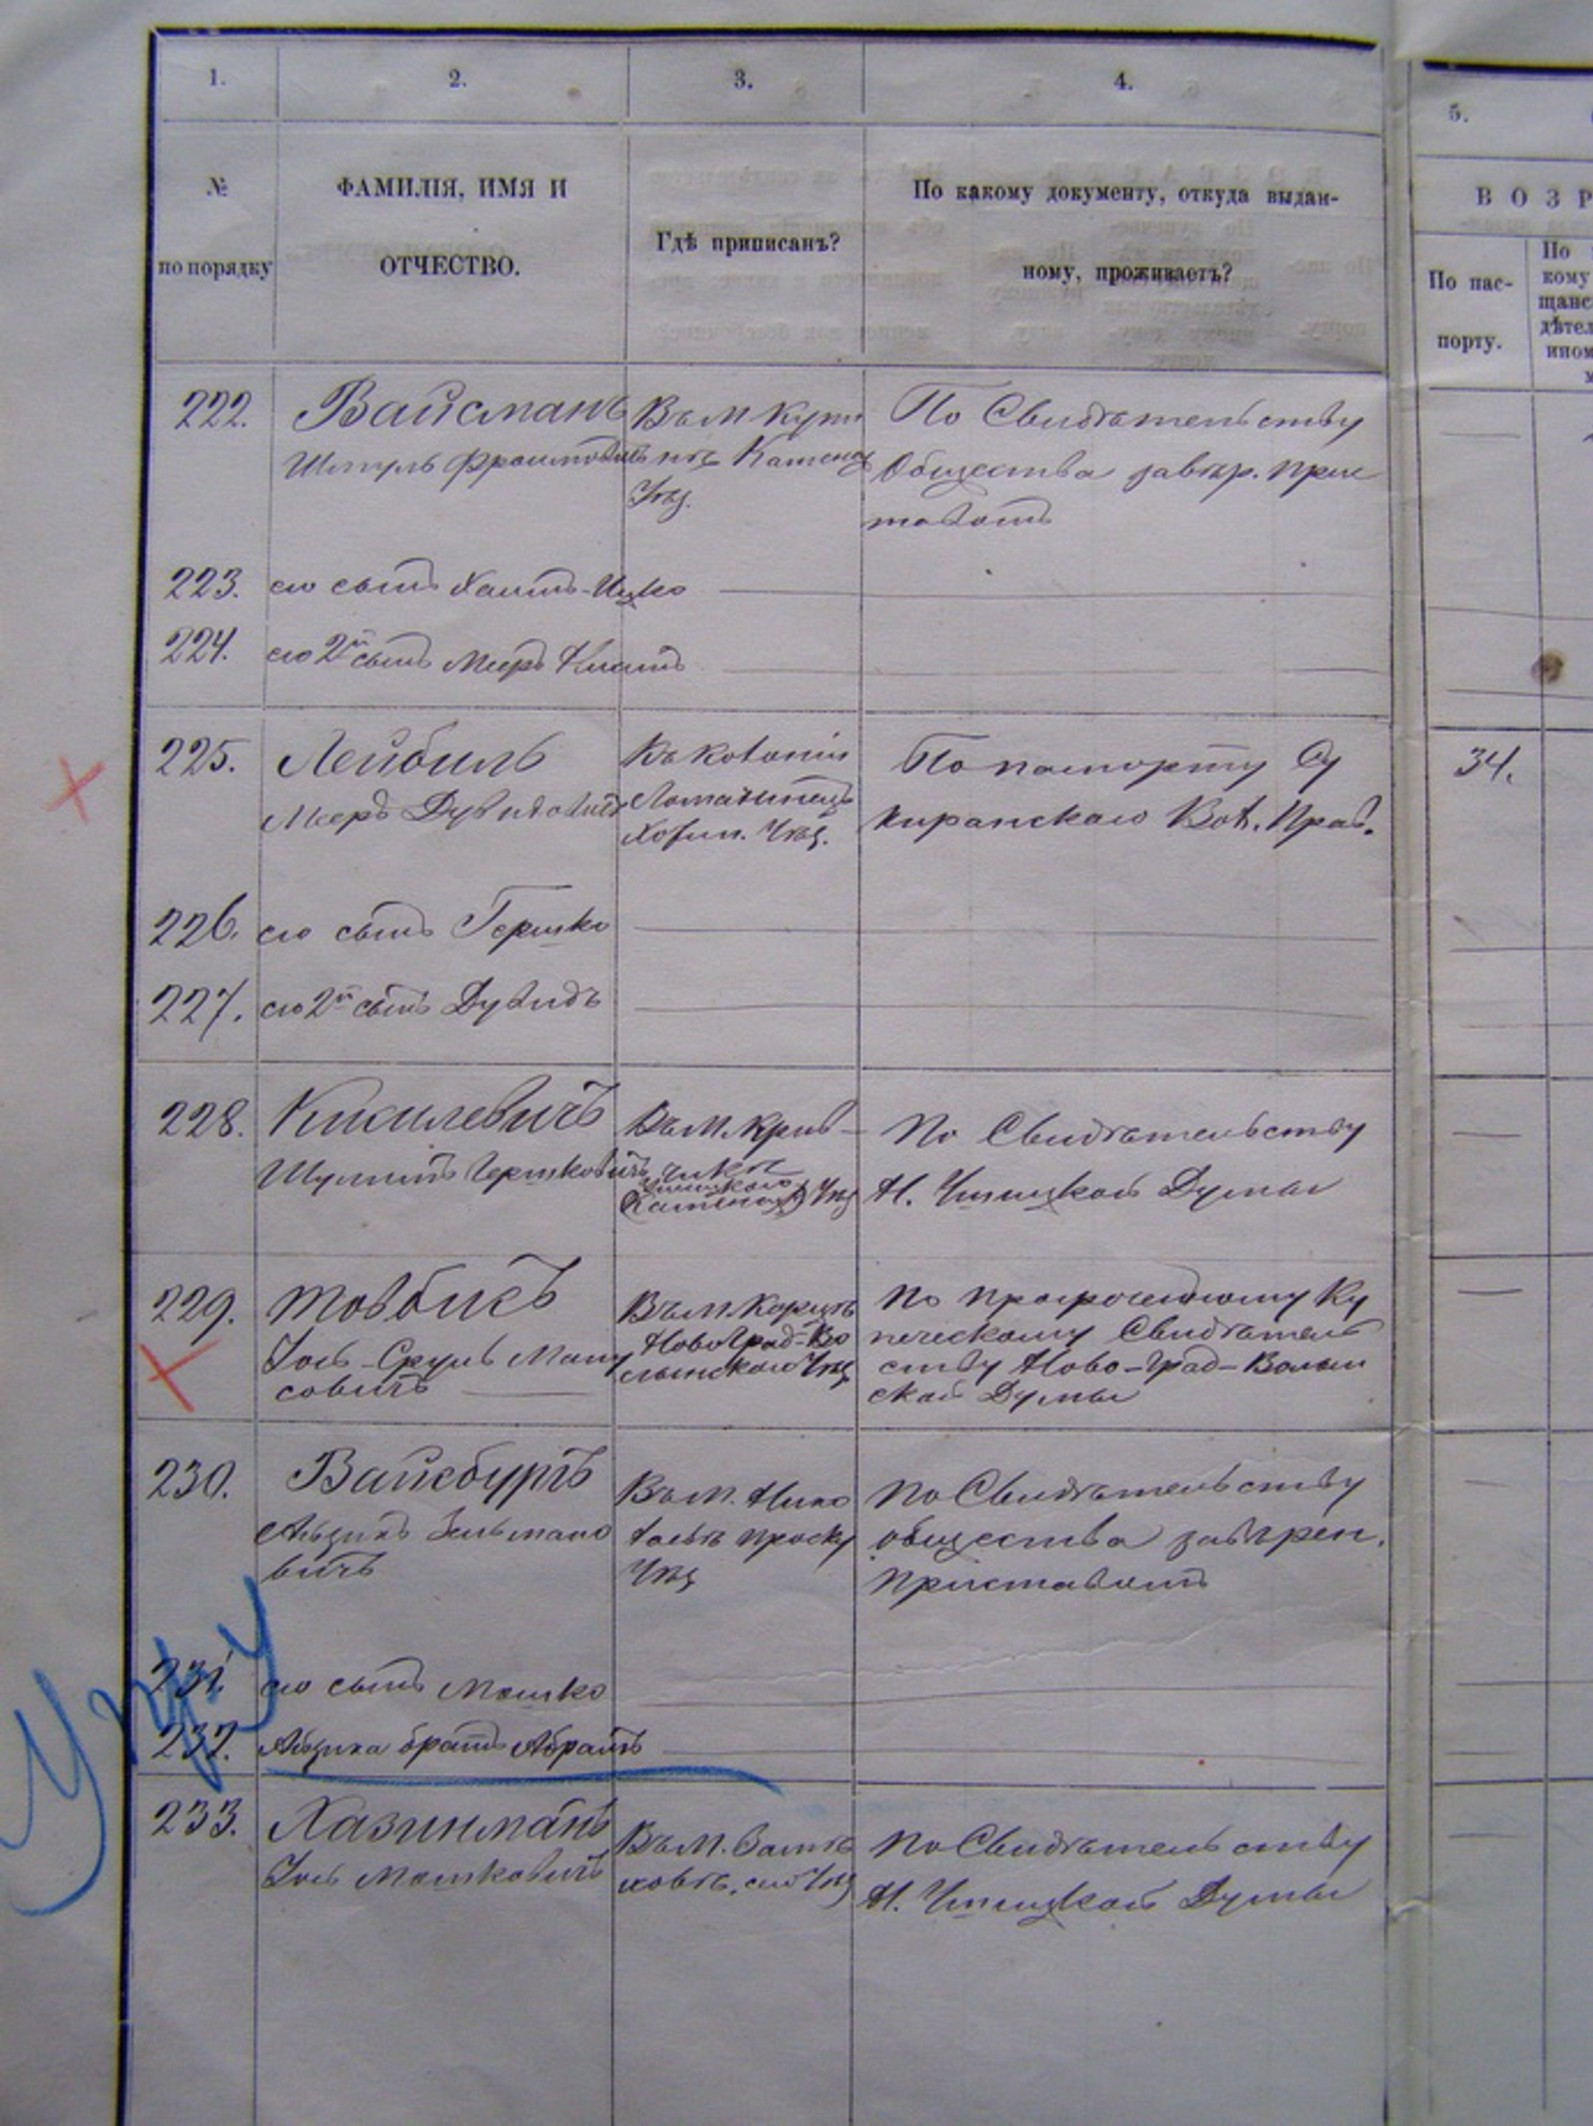 1. 2. 3. 4. 5.
№
по порядку
ФАМИЛІЯ, ИМЯ И
ОТЧЕСТВО.
Гдѣ приписанъ?
По какому документу, откуда выдан-
ному, проживаетъ?
ВОЗР
По пас-
порту.
По
кому
щанс
дѣтел
ином
222. Вайсманъ
Шмуль Фроимовичъ
Въ М. Купи
нѣ Камен
Уѣз.
По Свидѣтельству
Общества завѣр. При
ставомъ
223. его сынъ Хаимъ-Ицко
224. его 2й сынъ Мееръ
225. Лейбиль
Мееръ Дувидовичъ
Въ Колоніи
Ломачинецъ
Хотин. Уѣз.
По паспорту Су
киранского Вол. Прав.
34.
226. его сынъ Гершко
227. его 2й сынъ Дувидъ
228. Кисилевичъ
Шулимъ Гершковичъ
Въ М. Крив-
чикѣ
Ушицкого
Уѣз
По Свидѣтельству
Н. Ушицкой Думы
229. Товбисъ
Іось-СрульМану
совичъ
Въ М. Корцѣ
Новоград-Во
лынского Уѣз
По просроченному Ку
печескому Свидѣтель
ству Ново-Град-Волын
ской Думы
230. Вайсбургъ
Айзикъ Зельмано
вичъ
Въ М. Нико
лаевѣ Проску
Уѣз
По Свидѣтельству
общества завѣрен.
Приставомъ
231. его сынъ Мошко
232. Айзика братъ Абрамъ
233. Хазинманъ
Іось Мошковичъ
Въ М.
Уѣз
По Свидѣтельству
Н. Ушицкой Думы